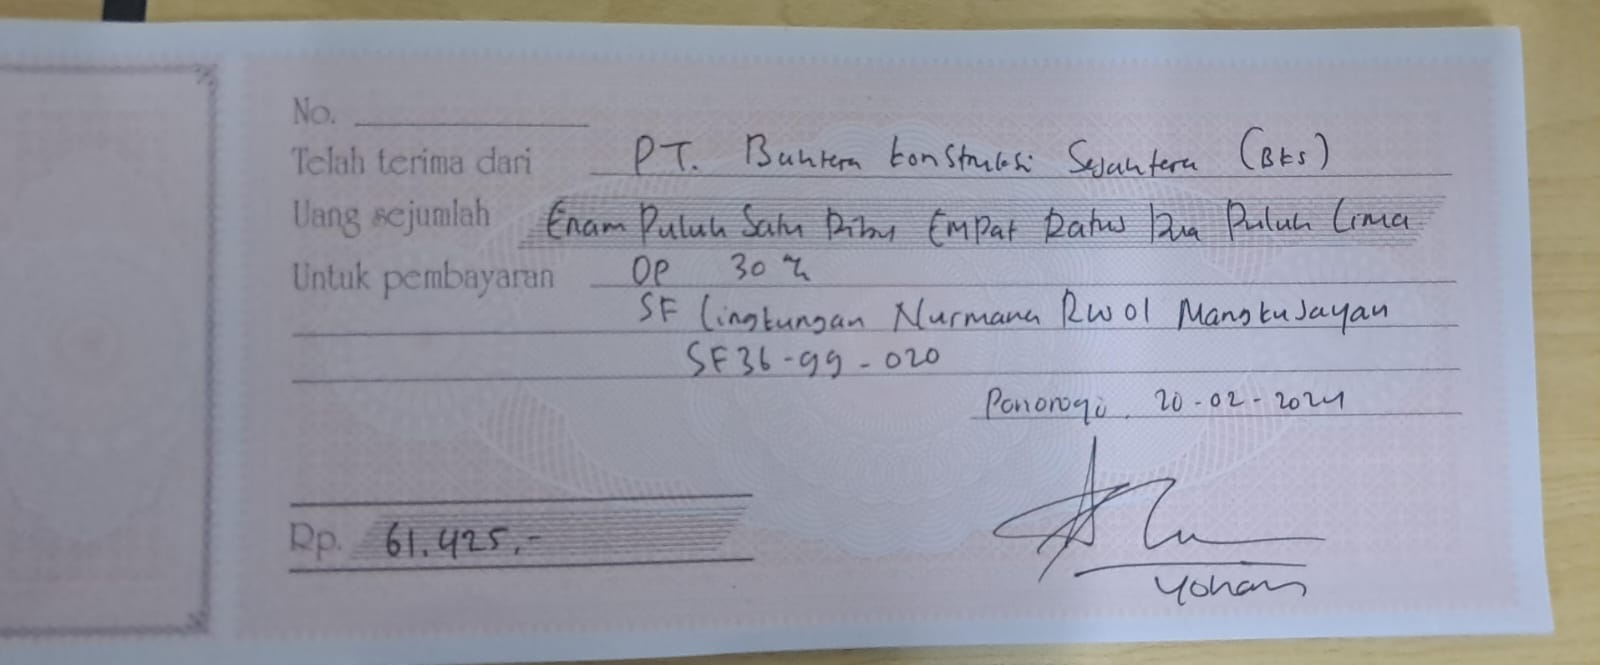 No.
Telah terima dari PT. Bahtera Konstruksi Sejahtera (BKS)
Uang sejumlah Enam Puluh Satu Ribu Empat Ratus Dua Puluh Lima
Untuk pembayaran OP 30 %
SF Lingkungan Nurmana RW 01 Mangkujayan
SF36-99-020
Ponorogo, 20-02-2024
Rp. 61.425,-
Yohan